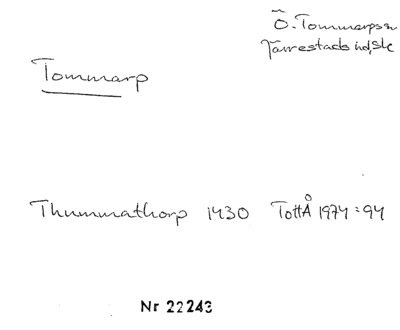 Ö. Tommarps sn
Järrestads hd, Sk
Tommarp
Thummathorp 1430 TottA 1974:94
Nr 22243